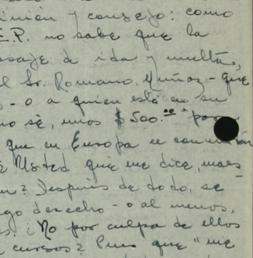 opinión y consejo: como
E.P. no sabe que la
pasaje d ida y vuelta,
el Sr. Romano Muñoz - que
- o a quien esté en su
no sé, unos $ 500.00 para
que en Europa se
Usted que me dice, maes-
¿Después de todo, se
go derecho - o al menos,
¿No por culpa de ellos
cursos? Pues que "me